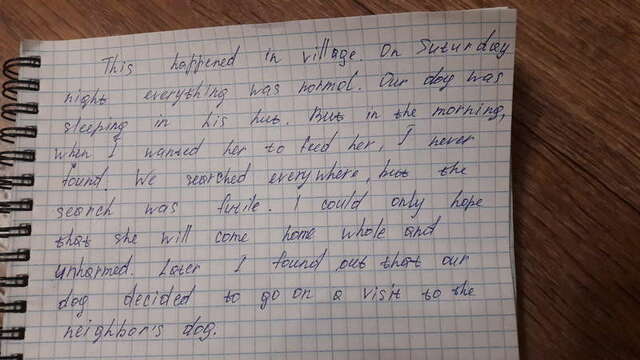 This happened in village. On Suturday
night everything was normal. Our dog was
sleeping in his hut. But in the morning,
when I wanted her to feed her, I never
found. We searched everywhere, but the
search was futile. I could only hope
that she will come home whole and
unharmed. Later I found out that our
dog decided to go on a visit to the
neighbors dog.